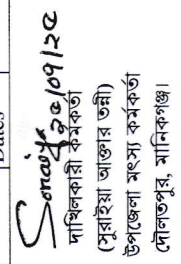 Soraiya
২৫/০৭/২৫
দাখিলকারী কর্মকর্তা
(সুরাইয়া আক্তার তন্নী)
উপজেলা মৎস্য কর্মকর্তা
দৌলতপুর, মানিকগঞ্জ।